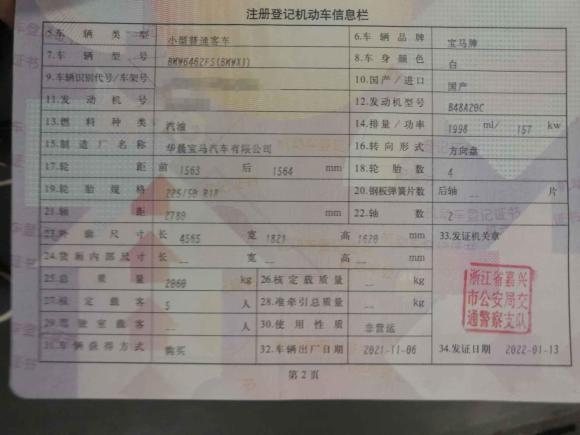 注册登记机动车信息栏
5.车辆类型 小型普通客车 6.车辆品牌 宝马牌
7.车辆型号 BMW6462FS(BMWX1) 8.车身颜色 白
9.车辆识别代号/车架号 10.国产/进口 国产
11.发动机号 12.发动机型号 B48A20C
13.燃料种类 汽油 14.排量/功率 1998 ml/ 157 kw
15.制造厂名称 华晨宝马汽车有限公司 16.转向形式 方向盘
17.轮距 前 1563 后 1564 mm 18.轮胎数 4
19.轮胎规格 225/50 R18 20.钢板弹簧片数 后轴 -- 片
21.轴距 2780 mm 22.轴数 2
23.外廓尺寸 长 4565 宽 1821 高 1620 mm 33.发证机关章
24.货厢内部尺寸 长 -- 宽 -- 高 -- mm
25.总质量 2060 kg 26.核定载质量 -- kg
27.核定载客 5 人 28.准牵引总质量 -- kg
29.驾驶室载客 -- 人 30.使用性质 非营运
31.车辆获得方式 购买 32.车辆出厂日期 2021-11-06 34.发证日期 2022-01-13
浙江省嘉兴
市公安局交
通警察支队
第2页